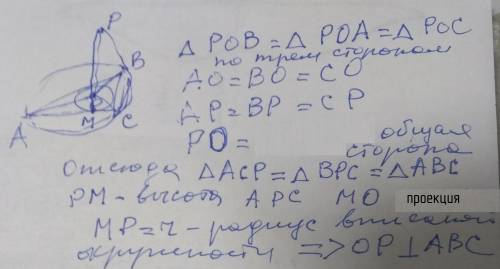 P
B
A
M
C
Δ POB = Δ POA = Δ POC
по трем сторонам
AO = BO = CO
AP = BP = CP
PO =
общая
сторона
Отсюда ΔACP = Δ BPC = ΔABC
PM - высота APC MO проекция
MP = r - радиус вписаной
окружности => OP⊥ABC